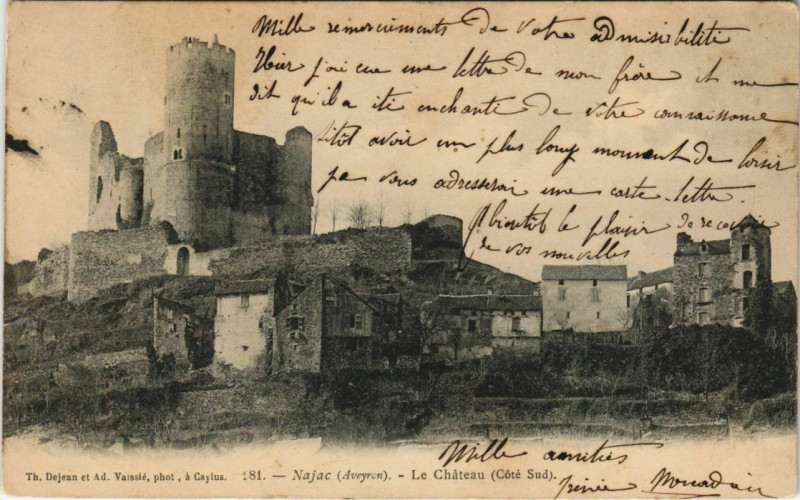 Mille remerciements de votre admisibilité
Hier j'ai eue une lettre de mon frère et me
dit qu'il a été enchanté de votre connaissance
sitôt avoir un plus long moment de loisir
je vous adresserai une carte-lettre.
A bientôt le plaisir de recevoir
de vos nouvelles
Mille amitiés
Irénée
Th. Dejean et Ad. Vaissié, phot., à Caylus. 181. — Najac (Aveyron). - Le Château (Côté Sud).